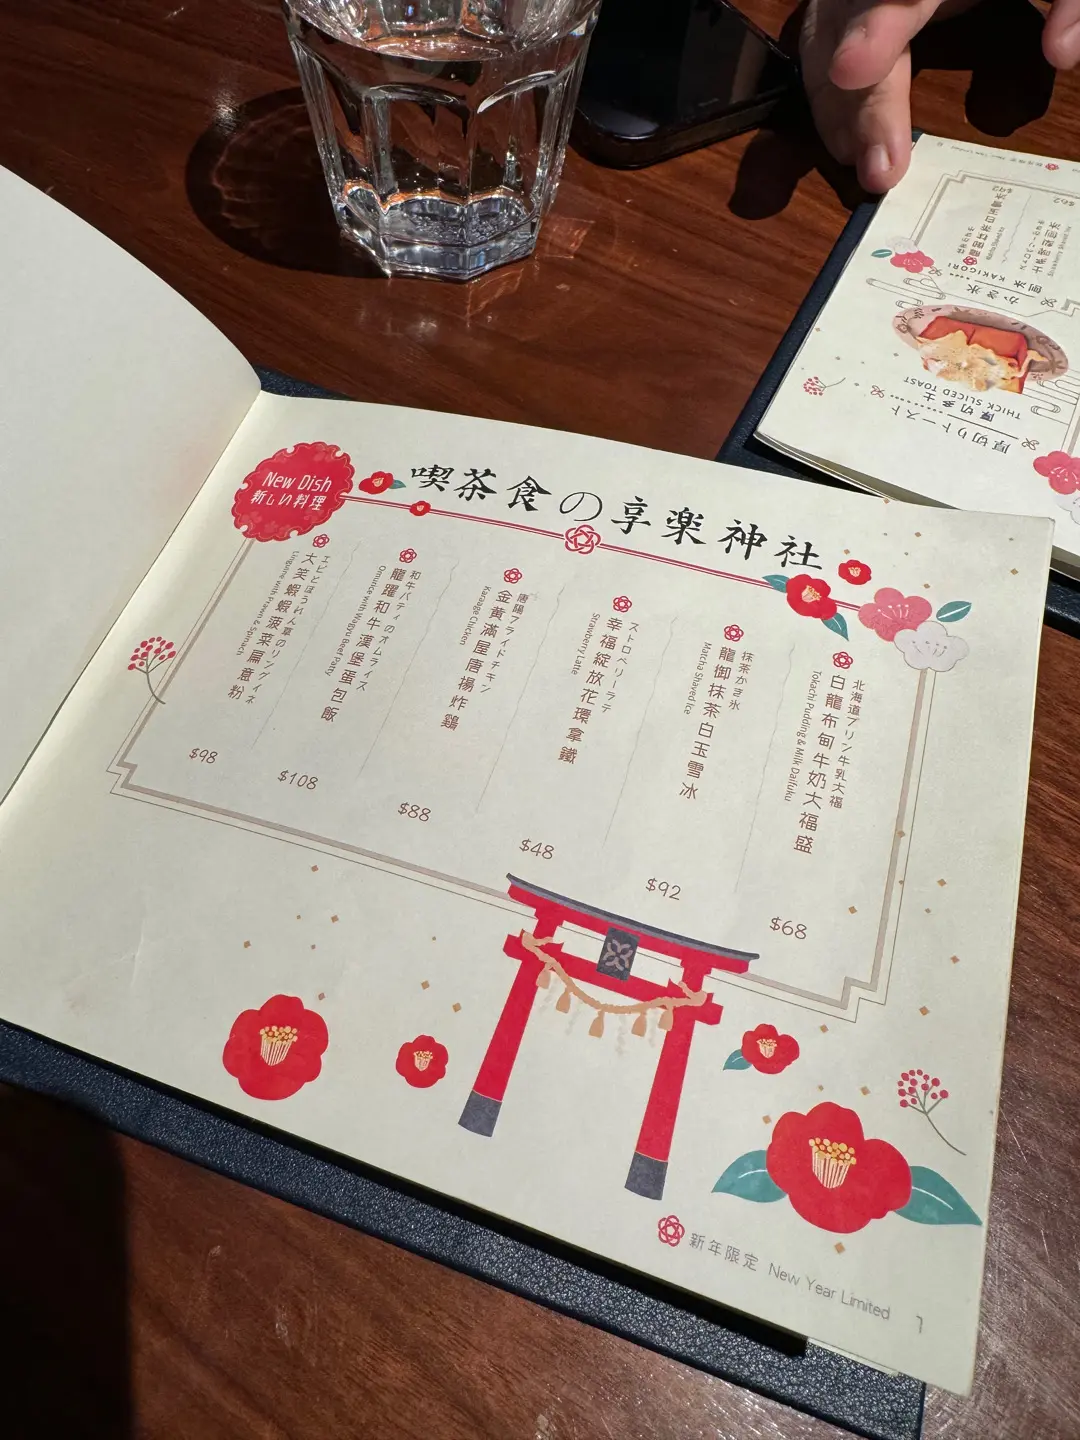 喫茶食の享楽神社
New Dish
新しい料理
北海道プリン牛乳大福
白龍布甸牛奶大福盛
Tokachi Pudding & Milk Daifuku
$68
抹茶かき氷
龍御抹茶白玉雪冰
Matcha Shaved Ice
$92
ストロベリーラテ
幸福綻放花環拿鐵
Strawberry Latte
$48
唐陽フライドチキン
金黃滿屋唐揚炸鷄
Karaage Chicken
$88
和牛パティのオムライス
龍躍和牛漢堡蛋包飯
Omurice with Wagyu Beef Patty
$108
エビとほうれん草のリングイネ
大笑蝦蝦菠菜扁意粉
Linguine with Prawn & Spinach
$98
新年限定 New Year Limited
1
厚切りトースト
厚切多士
THICK SLICED TOAST
かき氷
刨冰 KAKIGORI
$92
$62